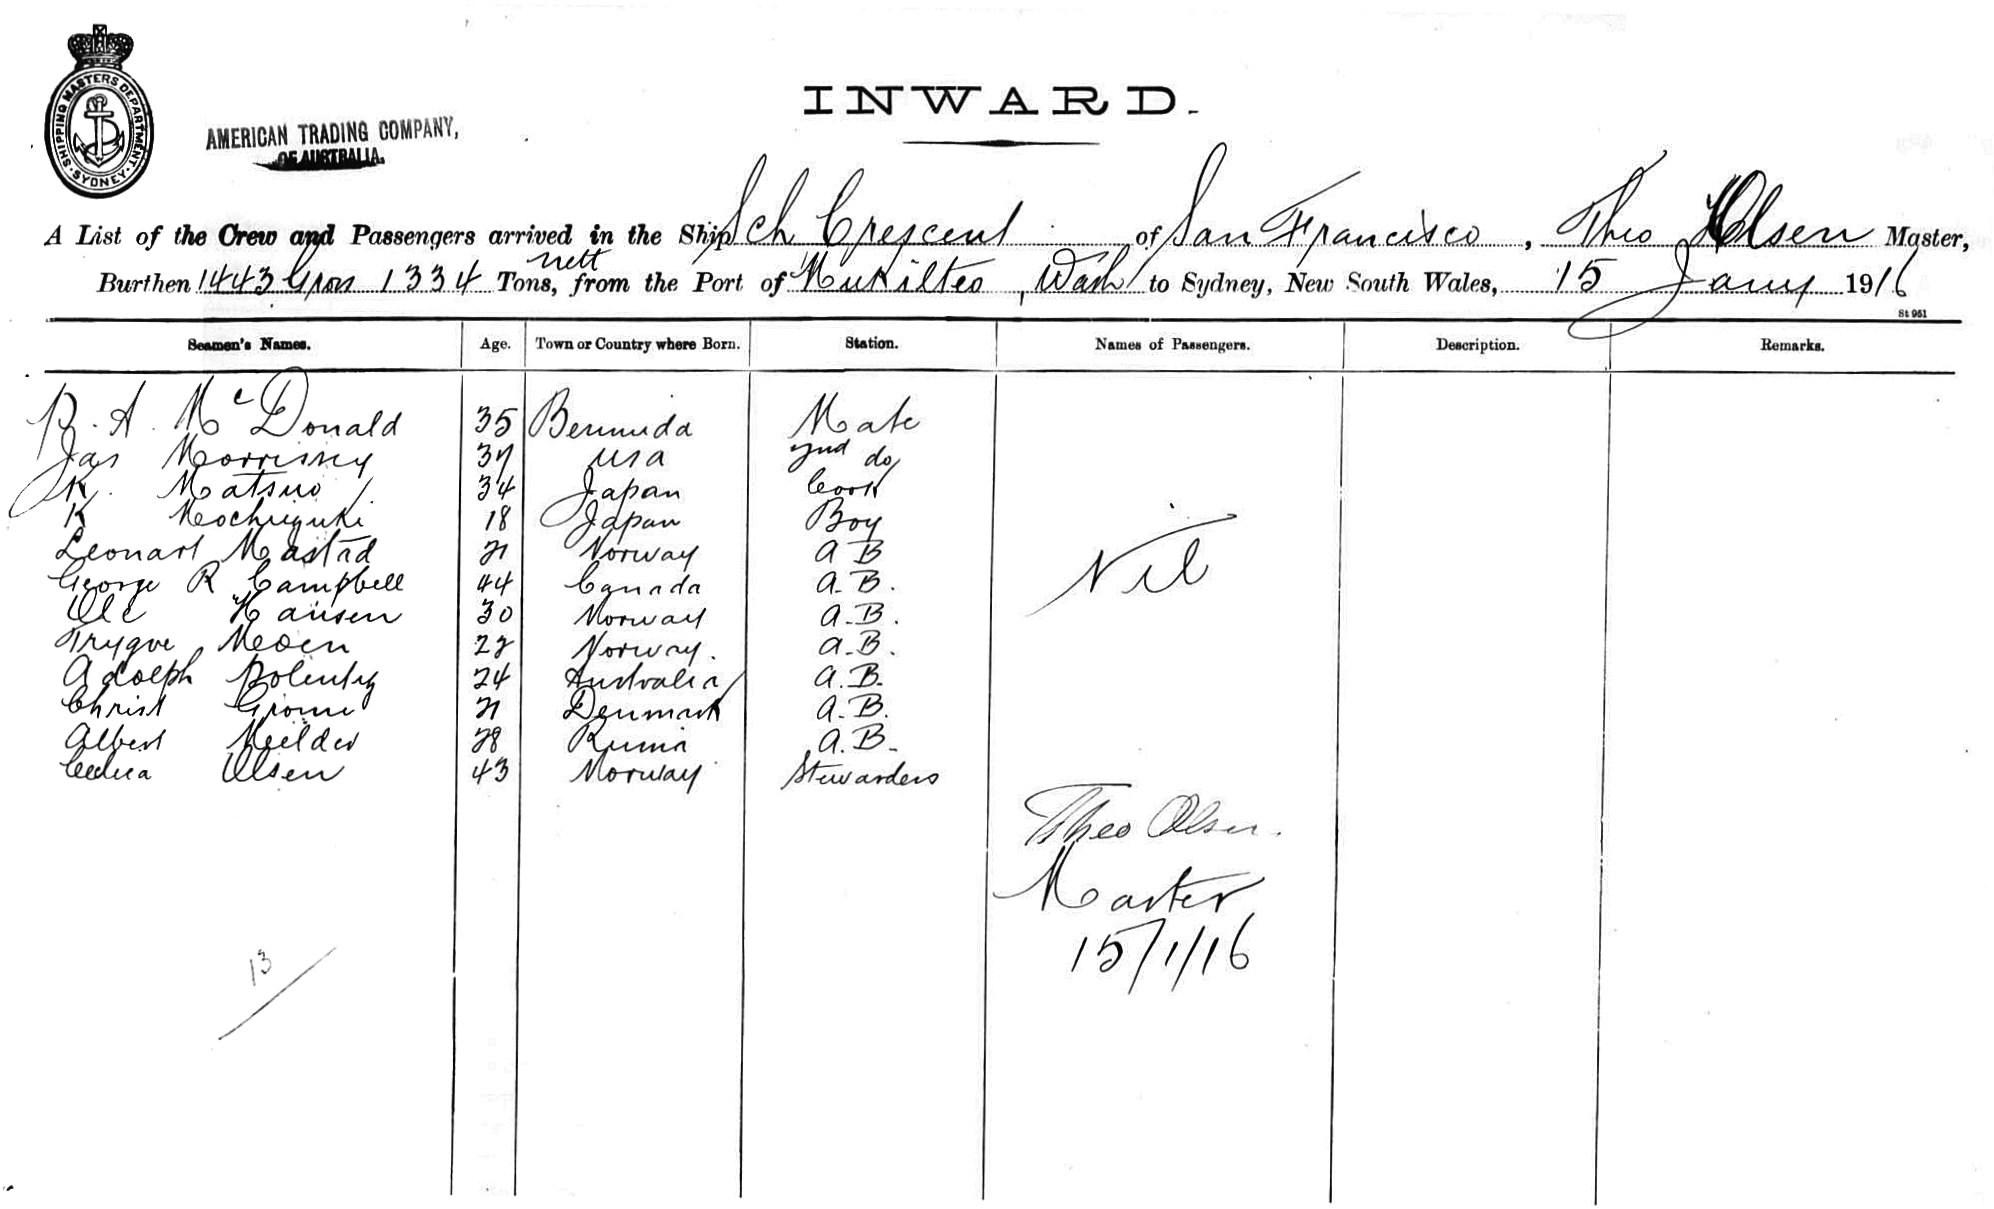 SHIPPING MASTERS DEPARTMENT. SYDNEY.
AMERICAN TRADING COMPANY,
OF AUSTRALIA.
INWARD.
A List of the Crew and Passengers arrived in the Ship Sch Crescent of San Francisco, Theo Olsen Master,
Burthen 1443 Gross 1334 Tons, nett from the Port of Mukilteo, Wash to Sydney, New South Wales, 15 Jany 1916
St 951
Seamen's Names. Age. Town or Country where Born. Station. Names of Passengers. Description. Remarks.
R. A. McDonald 35 Bermuda Mate
Jas Morrisey 37 USA 2nd do
K. Matsuo 34 Japan Cook
K Mochizuki 18 Japan Boy
Leonart Mastad 21 Norway A B
George R Campbell 44 Canada A.B.
Ole Hansen 30 Norway A.B.
Trygve Moen 22 Norway. A.B.
Adolph 24 Australia A.B.
Christ 21 Denmark A.B.
Albert 28 Russia A.B.
Olsen 43 Norway Stewardess
Nil
Theo Olsen.
Master
15/1/16
13